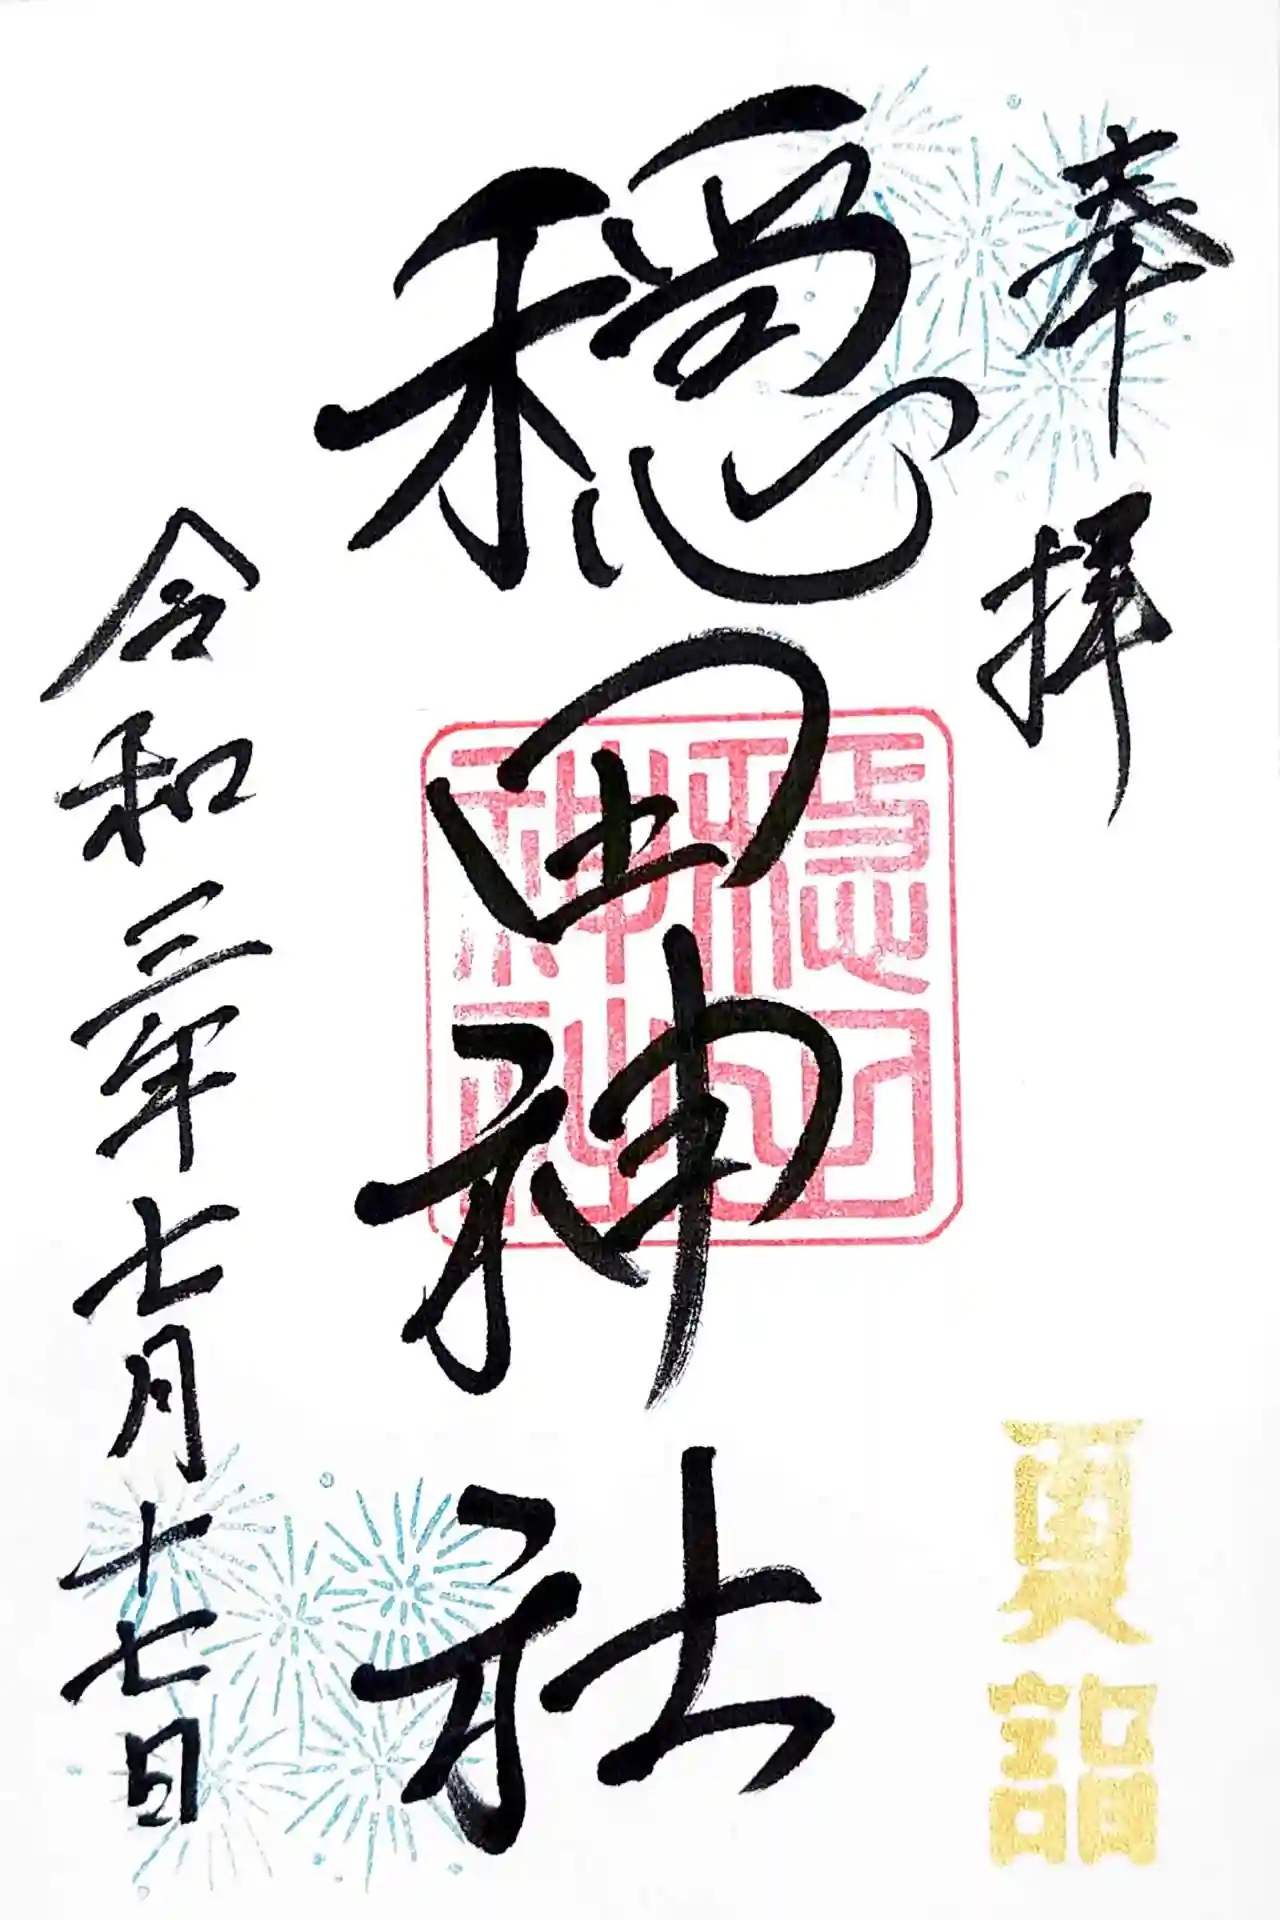 奉拝
夏詣
穏田神社
穏田神社
令和三年七月十七日